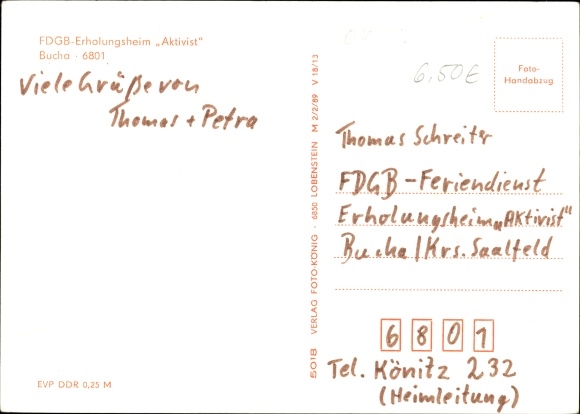 FDGB-Erholungsheim „Aktivist"
Bucha - 6801
Viele Grüße von
Thomas + Petra
EVP DDR 0,25 M
5018 VERLAG FOTO-KÖNIG · 6850 LOBENSTEIN M 2/2/89 V 18/13
6,50€
Foto-
Handabzug
Thomas Schreiter
FDGB-Feriendienst
Erholungsheim „Aktivist"
Bucha/Krs. Saalfeld
6801
Tel. Könitz 232
(Heimleitung)